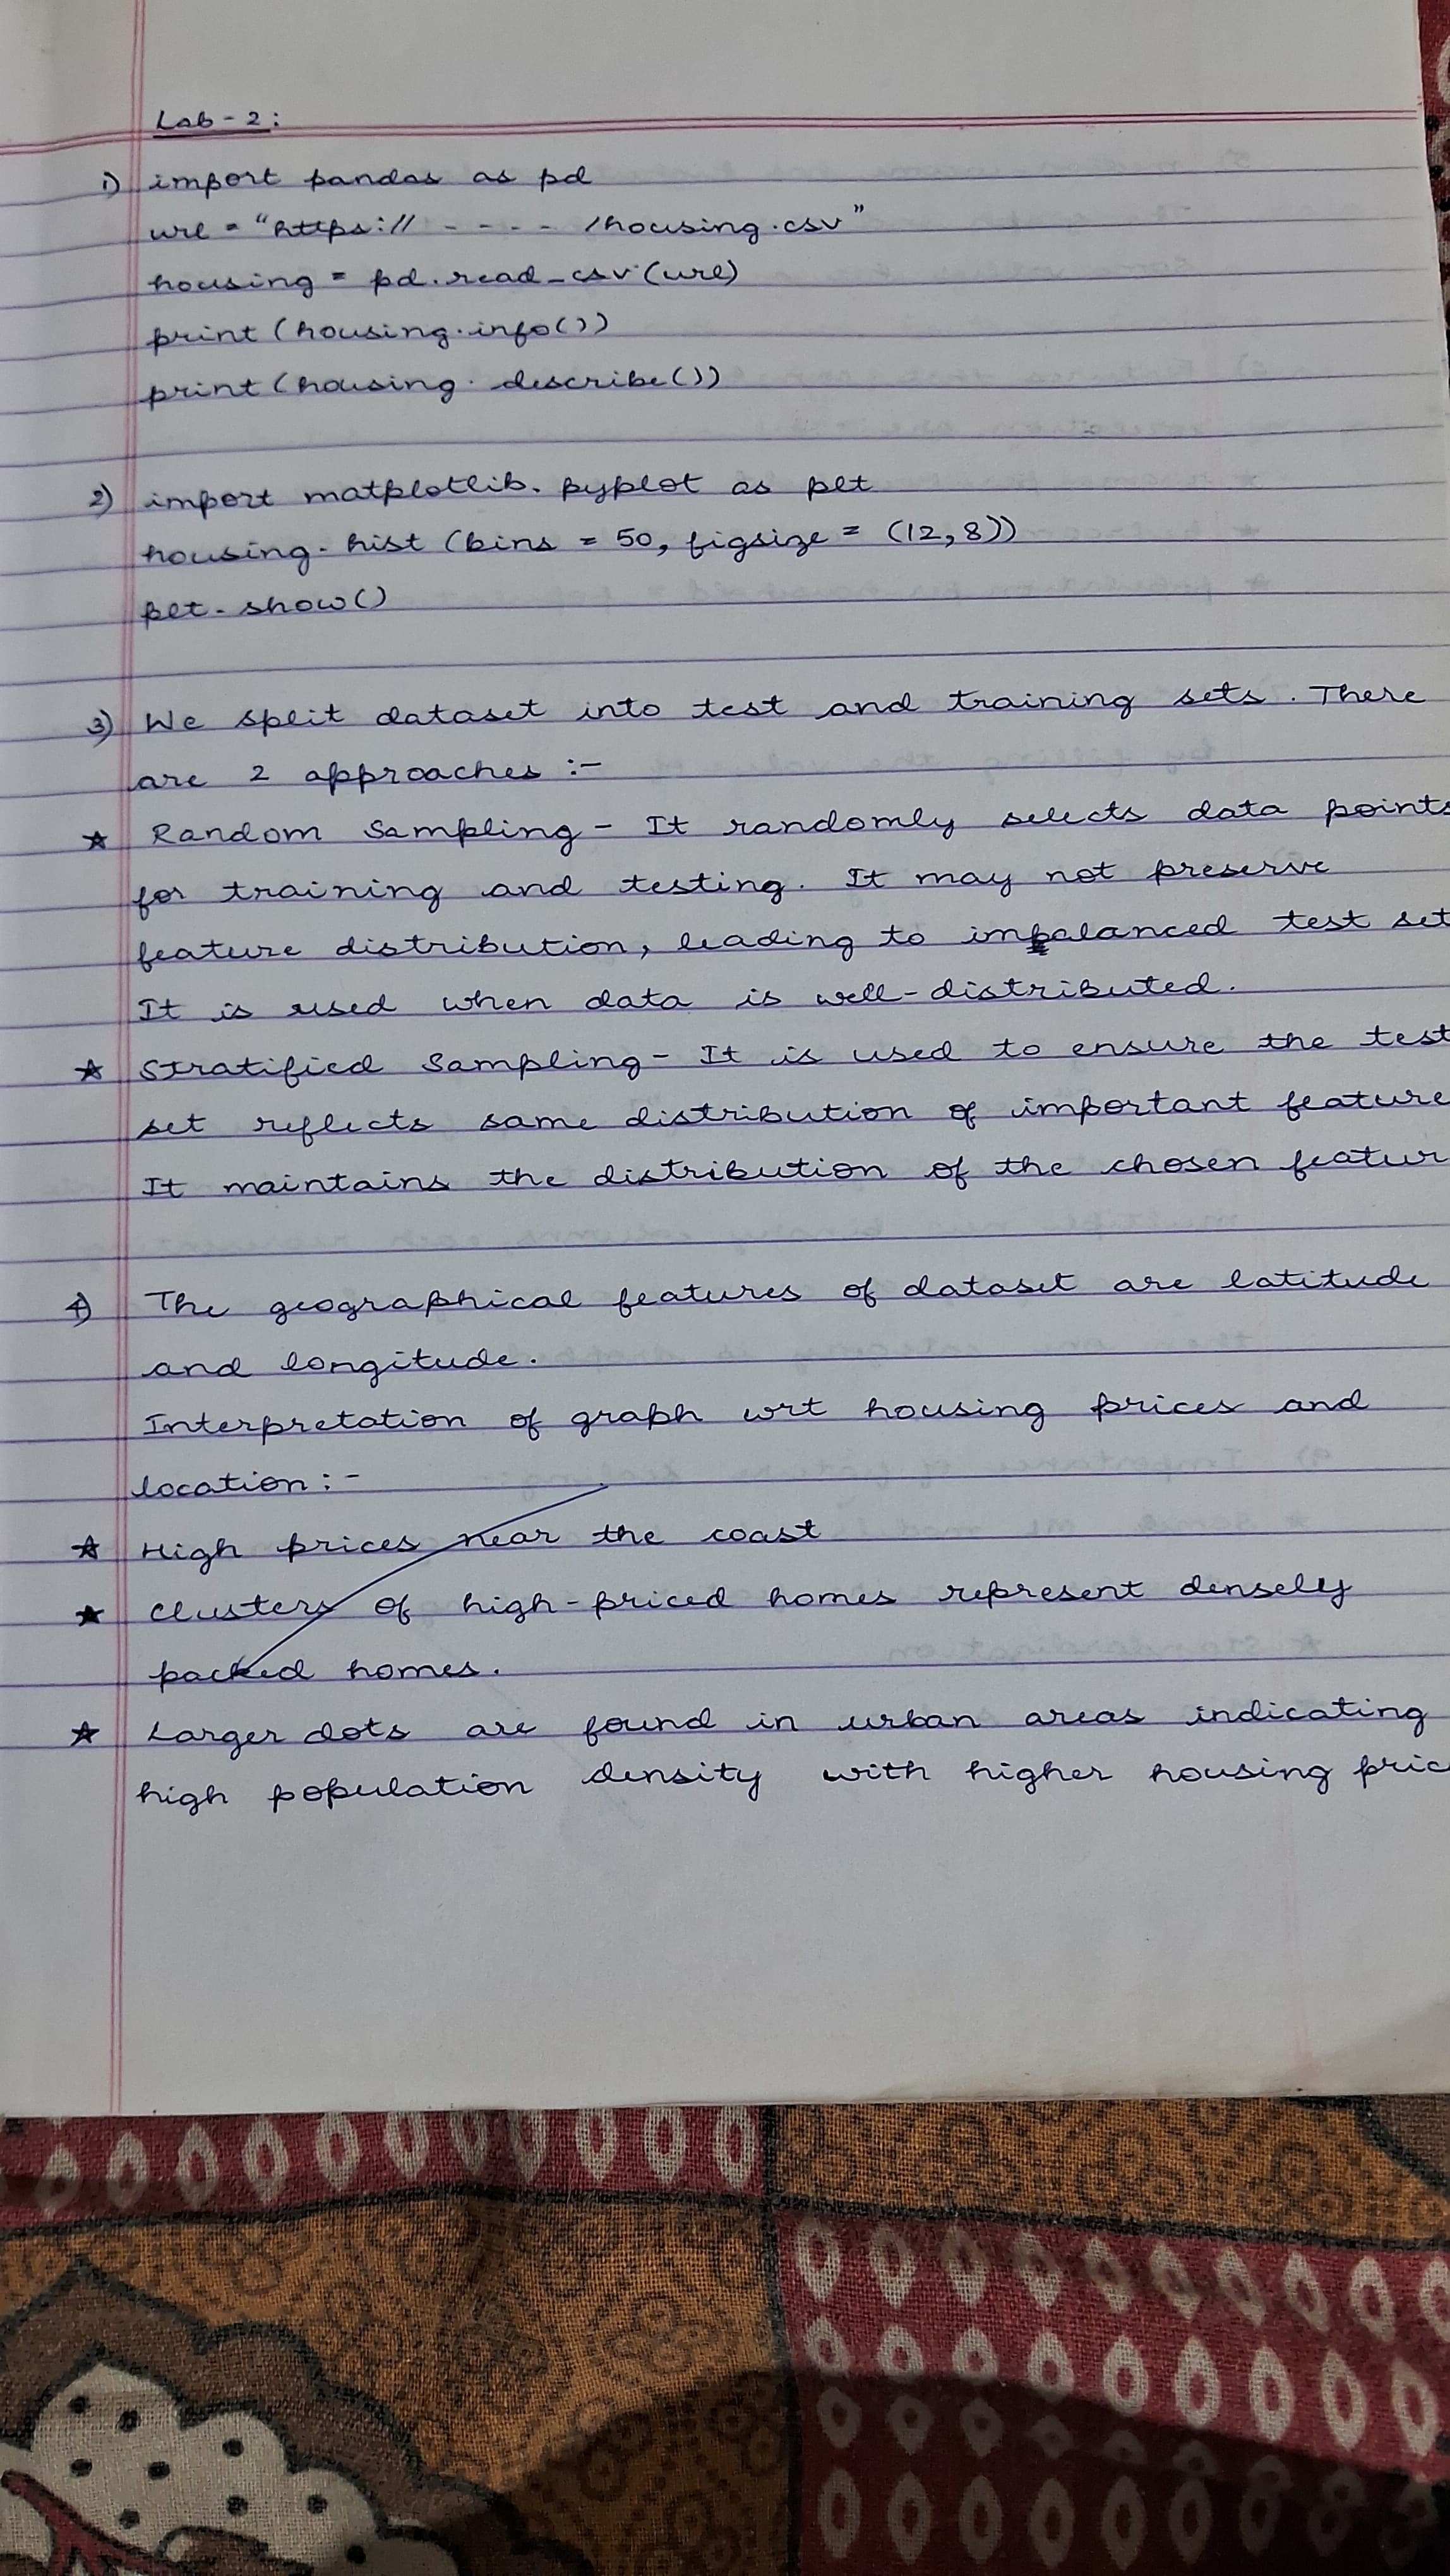 Lab - 2:
1) import pandas as pd
url = "https:// - - - - /housing.csv"
housing = pd.read_csv(url)
print(housing.info())
print(housing.describe())
2) import matplotlib.pyplot as plt
housing.hist(bins = 50, figsize = (12,8))
plt.show()
3) We split dataset into test and training sets. There
are 2 approaches :-
★ Random Sampling - It randomly selects data points
for training and testing. It may not preserve
feature distribution, leading to imbalanced test set
It is used when data is well-distributed.
★ Stratified Sampling - It is used to ensure the test
set reflects same distribution of important feature
It maintains the distribution of the chosen featur
4) The geographical features of dataset are latitude
and longitude.
Interpretation of graph wrt housing prices and
location :-
★ High prices near the coast
★ Clusters of high-priced homes represent densely
packed homes.
★ Larger dots are found in urban areas indicating
high population density with higher housing pric